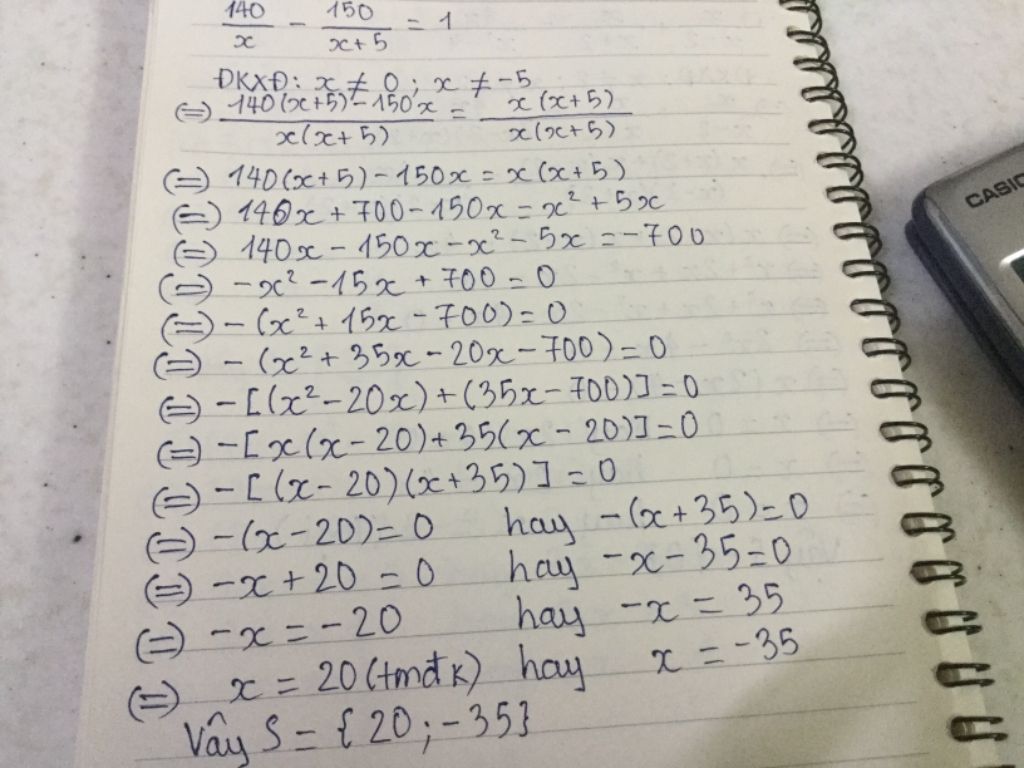 140/x - 150/x+5 = 1
ĐKXĐ: x ≠ 0 ; x ≠ -5
(=) 140(x+5)-150x/x(x+5) = x(x+5)/x(x+5)
(=) 140(x+5) - 150x = x(x+5)
(=) 140x + 700 - 150x = x² + 5x
(=) 140x - 150x - x² - 5x = -700
(=) -x² - 15x + 700 = 0
(=) -(x² + 15x - 700) = 0
(=) -(x² + 35x - 20x - 700) = 0
(=) -[(x² - 20x) + (35x - 700)] = 0
(=) -[x(x - 20) + 35(x - 20)] = 0
(=) -[(x - 20)(x + 35)] = 0
(=) -(x - 20) = 0 hay -(x + 35) = 0
(=) -x + 20 = 0 hay -x - 35 = 0
(=) -x = -20 hay -x = 35
(=) x = 20 (tmđk) hay x = -35
Vậy S = {20; -35}
CASIO